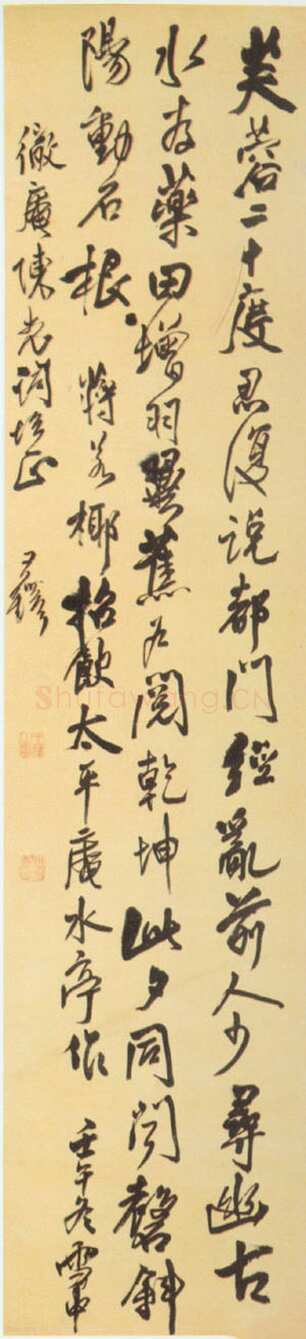 芙蓉二十度忍復説都門經亂前人少尋幽古
水存藥田增羽翼蕉石閱乾坤此夕同閒磬斜
陽動石根 蔣若椰招飲太平庵水亭作 壬午冬雪中
徹庵陳老詞壇正 王鐸